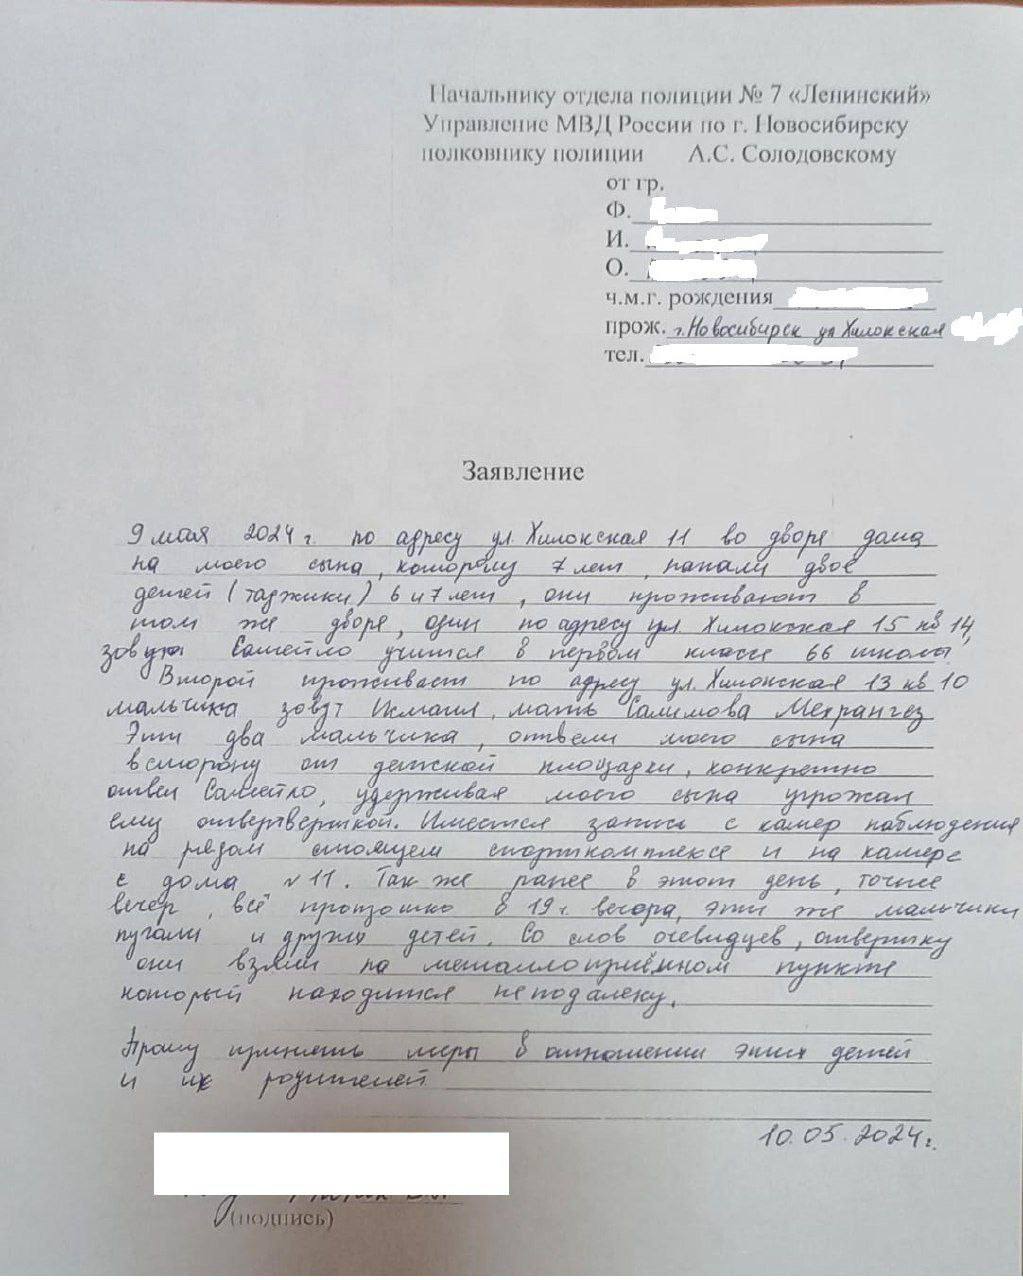 Начальнику отдела полиции № 7 «Ленинский»
Управление МВД России по г. Новосибирску
полковнику полиции А.С. Солодовскому
от гр.
Ф.
И.
О.
ч.м.г. рождения
прож. г.Новосибирск ул Хилокская
тел.
Заявление
9 мая 2024 г. по адресу ул. Хилокская 11 во дворе дома
на моего сына, которому 7 лет, напали двое
детей (таджики) 6 и 7 лет, они проживают в
том же дворе, один по адресу ул. Хилокская 15 кв 14,
зовут учится в первом классе 66 школы.
Второй проживает по адресу ул. Хилокская 13 кв 10
мальчика зовут Исмаил, мать Салимова Мехрангез
Эти два мальчика, отвели моего сына
в сторону от детской площадки, конкретно
отвел удерживая моего сына угрожал
ему Имеется запись с камер наблюдения
на рядом стоящем спорткомплексе и на камере
с дома № 11. Так же ранее в этот день, точнее
вечер, всё произошло в 19 ч. вечера, эти же мальчики
пугали и других детей. Со слов очевидцев, отвертку
они взяли на металлоприёмном пункте
который находится неподалеку.
Прошу принять меры в отношении этих детей
и их родителей
10.05.2024г.
(подпись)